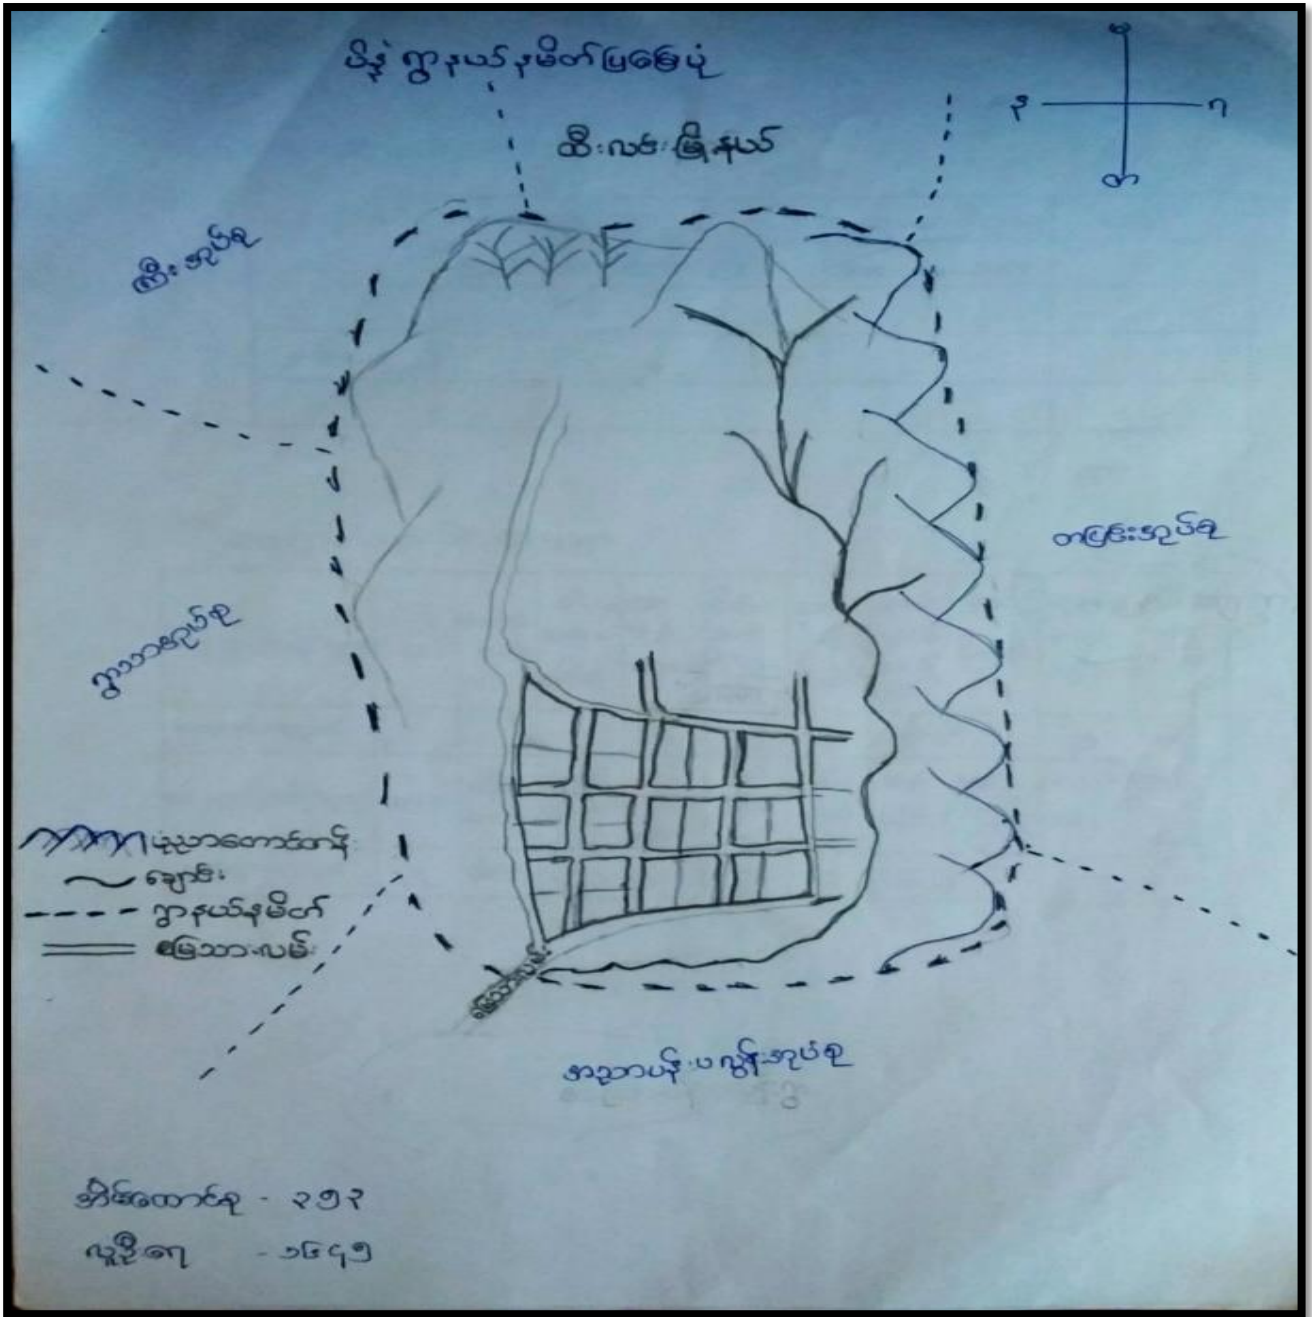 ပိန္နဲ ရွာနယ်နမိတ်ပြမြေပုံ
ထီးလင်းမြို့နယ်
မ
န
ရ
တ
ကြီးအုပ်စု
တပြင်းအုပ်စု
ရွာသာအုပ်စု
ပုံညာတောင်တန်း
ချောင်း
ရွာနယ်နမိတ်
မြေသားလမ်း
မြေသားလမ်း
အညာပန်းပလွန်းအုပ်စု
အိမ်ထောင်စု - ၃၅၃
လူဦးရေ - ၁၆၄၅